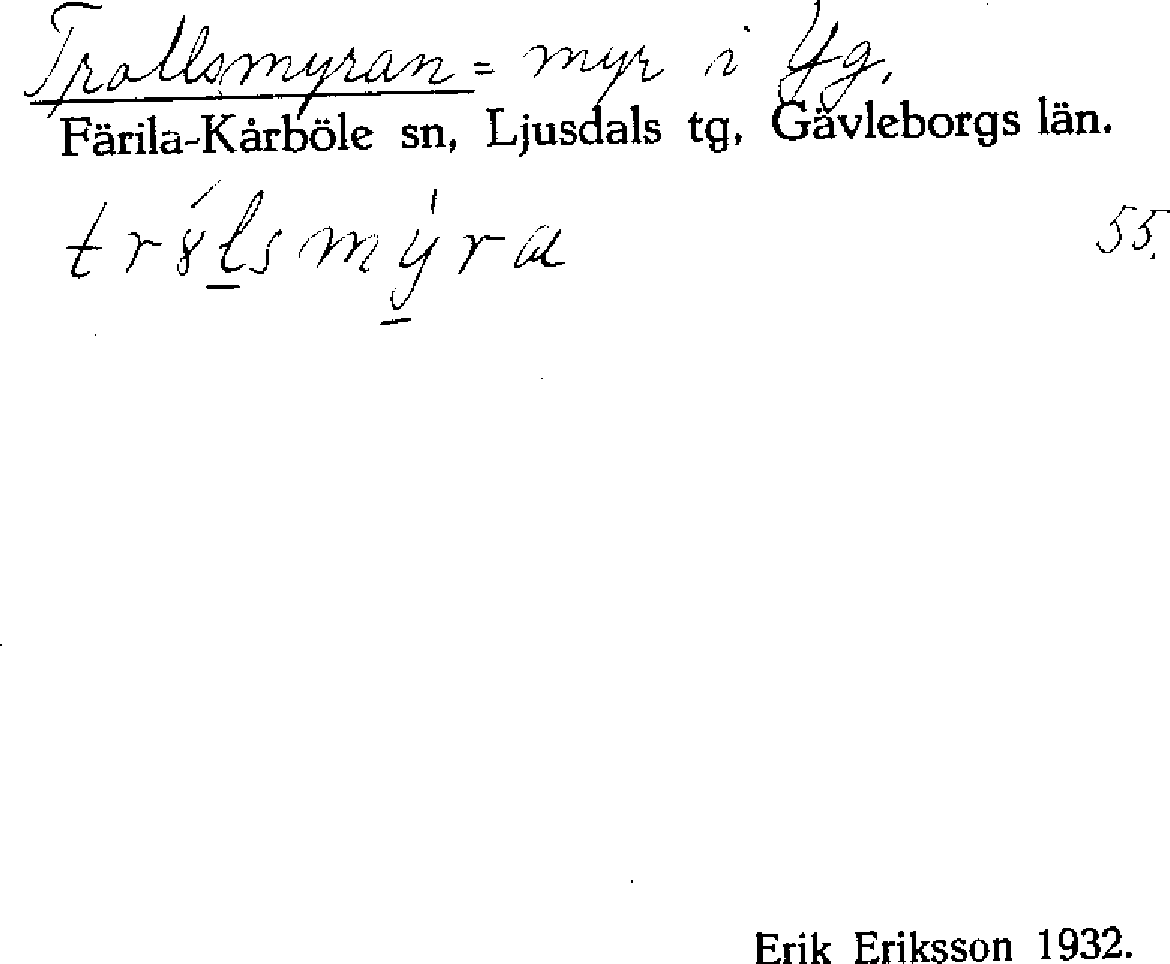 Trollsmyran = myr i Yg.
Färila-Kårböle sn, Ljusdals tg, Gävleborgs län.
tr8́lsmýra
55.
Erik Eriksson 1932.